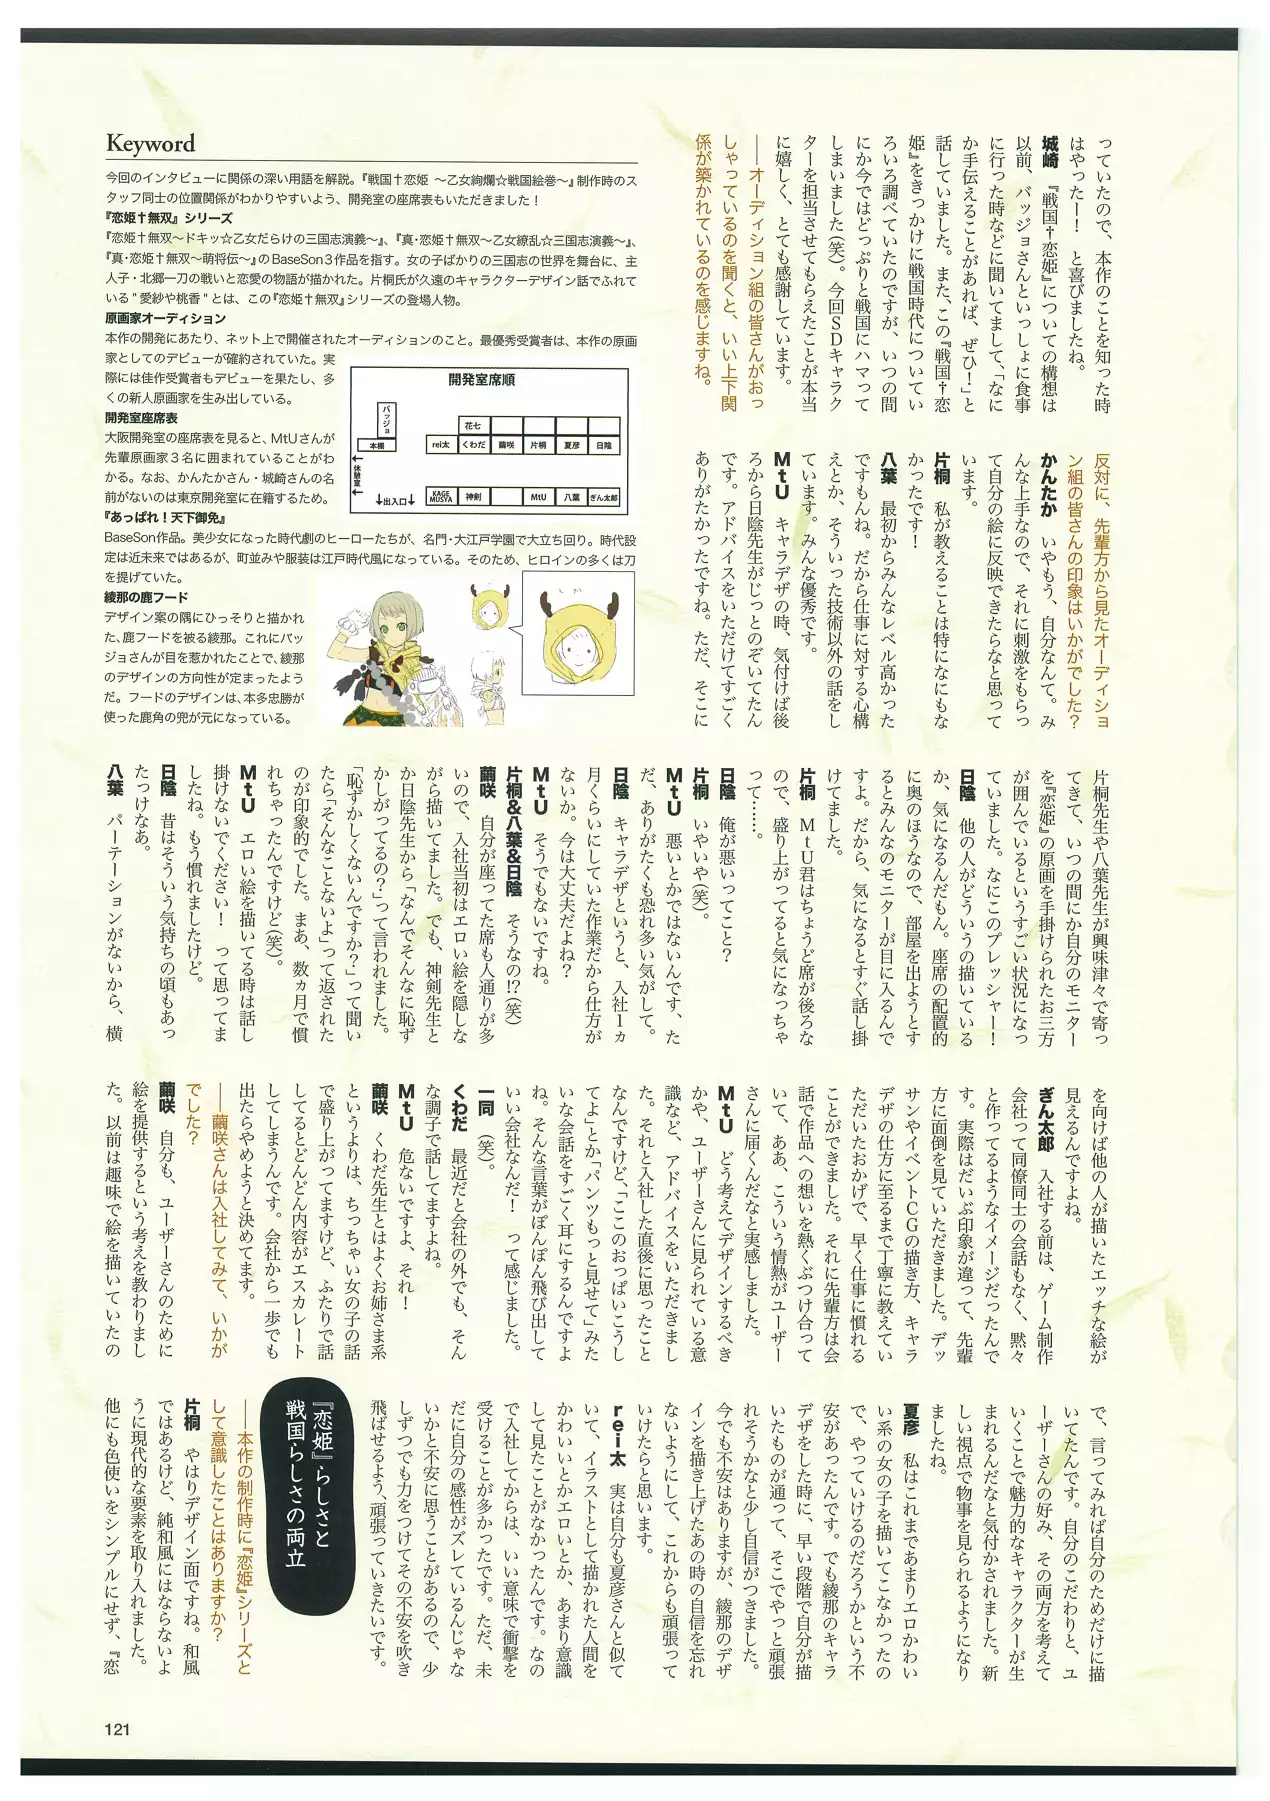 っていたので、本作のことを知った時
はやったー！　と喜びましたね。
城崎　『戦国†恋姫』についての構想は
以前、バッジョさんといっしょに食事
に行った時などに聞いてまして、「なに
か手伝えることがあれば、ぜひ！」と
話していました。また、この『戦国†恋
姫』をきっかけに戦国時代についてい
ろいろ調べていたのですが、いつの間
にか今ではどっぷりと戦国にハマって
しまいました（笑）。今回ＳＤキャラク
ターを担当させてもらえたことが本当
に嬉しく、とても感謝しています。
――オーディション組の皆さんがおっ
しゃっているのを聞くと、いい上下関
係が築かれているのを感じますね。
反対に、先輩方から見たオーディショ
ン組の皆さんの印象はいかがでした？
かんたか　いやもう、自分なんて。み
んな上手なので、それに刺激をもらっ
て自分の絵に反映できたらなと思って
います。
片桐　私が教えることは特になにもな
かったです！
八葉　最初からみんなレベル高かった
ですもんね。だから仕事に対する心構
えとか、そういった技術以外の話をし
ています。みんな優秀です。
ＭｔＵ　キャラデザの時、気付けば後
ろから日陰先生がじっとのぞいてたん
です。アドバイスをいただけてすごく
ありがたかったですね。ただ、そこに
Keyword
今回のインタビューに関係の深い用語を解説。『戦国†恋姫 ～乙女絢爛☆戦国絵巻～』制作時のス
タッフ同士の位置関係がわかりやすいよう、開発室の座席表もいただきました！
『恋姫†無双』シリーズ
『恋姫†無双～ドキッ☆乙女だらけの三国志演義～』、『真・恋姫†無双～乙女繚乱☆三国志演義～』、
『真・恋姫†無双～萌将伝～』のBaseSon3作品を指す。女の子ばかりの三国志の世界を舞台に、主
人子・北郷一刀の戦いと恋愛の物語が描かれた。片桐氏が久遠のキャラクターデザイン話でふれて
いる"愛紗や桃香"とは、この『恋姫†無双』シリーズの登場人物。
原画家オーディション
本作の開発にあたり、ネット上で開催されたオーディションのこと。最優秀受賞者は、本作の原画
家としてのデビューが確約されていた。実
際には佳作受賞者もデビューを果たし、多
くの新人原画家を生み出している。
開発室座席表
大阪開発室の座席表を見ると、MtUさんが
先輩原画家3名に囲まれていることがわ
かる。なお、かんたかさん・城崎さんの名
前がないのは東京開発室に在籍するため。
『あっぱれ！天下御免』
BaseSon作品。美少女になった時代劇のヒーローたちが、名門・大江戸学園で大立ち回り。時代設
定は近未来ではあるが、町並みや服装は江戸時代風になっている。そのため、ヒロインの多くは刀
を提げていた。
綾那の鹿フード
デザイン案の隅にひっそりと描かれ
た、鹿フードを被る綾那。これにバッ
ジョさんが目を惹かれたことで、綾那
のデザインの方向性が定まったよう
だ。フードのデザインは、本多忠勝が
使った鹿角の兜が元になっている。
開発室席順
バッジョ
本棚
花七
rei太
くわだ
繭咲
片桐
夏彦
日陰
←休憩室←
↓出入口↓
KAGE
MUSYA
神剣
MtU
八葉
ぎん太郎
片桐先生や八葉先生が興味津々で寄っ
てきて、いつの間にか自分のモニター
を『恋姫』の原画を手掛けられたお三方
が囲んでいるというすごい状況になっ
ていました。なにこのプレッシャー！
日陰　他の人がどういうの描いている
か、気になるんだもん。座席の配置的
に奥のほうなので、部屋を出ようとす
るとみんなのモニターが目に入るんで
すよ。だから、気になるとすぐ話し掛
けてました。
片桐　ＭｔＵ君はちょうど席が後ろな
ので、盛り上がってると気になっちゃ
って……。
日陰　俺が悪いってこと？
片桐　いやいや（笑）。
ＭｔＵ　悪いとかではないんです、た
だ、ありがたくも恐れ多い気がして。
日陰　キャラデザというと、入社１ヵ
月くらいにしていた作業だから仕方が
ないか。今は大丈夫だよね？
ＭｔＵ　そうでもないですね。
片桐＆八葉＆日陰　そうなの!?（笑）
繭咲　自分が座ってた席も人通りが多
いので、入社当初はエロい絵を隠しな
がら描いてました。でも、神剣先生と
か日陰先生から「なんでそんなに恥ず
かしがってるの？」って言われました。
「恥ずかしくないんですか？」って聞い
たら「そんなことないよ」って返された
のが印象的でした。まあ、数ヵ月で慣
れちゃったんですけど（笑）。
ＭｔＵ　エロい絵を描いてる時は話し
掛けないでください！　って思ってま
したね。もう慣れましたけど。
日陰　昔はそういう気持ちの頃もあっ
たっけなあ。
八葉　パーテーションがないから、横
を向けば他の人が描いたエッチな絵が
見えるんですよね。
ぎん太郎　入社する前は、ゲーム制作
会社って同僚同士の会話もなく、黙々
と作ってるようなイメージだったんで
す。実際はだいぶ印象が違って、先輩
方に面倒を見ていただきました。デッ
サンやイベントＣＧの描き方、キャラ
デザの仕方に至るまで丁寧に教えてい
ただいたおかげで、早く仕事に慣れる
ことができました。それに先輩方は会
話で作品への想いを熱くぶつけ合って
いて、ああ、こういう情熱がユーザー
さんに届くんだなと実感しました。
ＭｔＵ　どう考えてデザインするべき
かや、ユーザーさんに見られている意
識など、アドバイスをいただきまし
た。それと入社した直後に思ったこと
なんですけど、「ここのおっぱいこうし
てよ」とか「パンツもっと見せて」みた
いな会話をすごく耳にするんですよ
ね。そんな言葉がぽんぽん飛び出して
いい会社なんだ！　って感じました。
一同　（笑）。
くわだ　最近だと会社の外でも、そん
な調子で話してますよね。
ＭｔＵ　危ないですよ、それ！
繭咲　くわだ先生とはよくお姉さま系
というよりは、ちっちゃい女の子の話
で盛り上がってますけど、ふたりで話
してるとどんどん内容がエスカレート
してしまうんです。会社から一歩でも
出たらやめようと決めてます。
――繭咲さんは入社してみて、いかが
でした？
繭咲　自分も、ユーザーさんのために
絵を提供するという考えを教わりまし
た。以前は趣味で絵を描いていたの
で、言ってみれば自分のためだけに描
いてたんです。自分のこだわりと、ユ
ーザーさんの好み、その両方を考えて
いくことで魅力的なキャラクターが生
まれるんだなと気付かされました。新
しい視点で物事を見られるようになり
ましたね。
夏彦　私はこれまであまりエロかわい
い系の女の子を描いてこなかったの
で、やっていけるのだろうかという不
安があったんです。でも綾那のキャラ
デザをした時に、早い段階で自分が描
いたものが通って、そこでやっと頑張
れそうかなと少し自信がつきました。
今でも不安はありますが、綾那のデザ
インを描き上げたあの時の自信を忘れ
ないようにして、これからも頑張って
いけたらと思います。
ｒｅｉ太　実は自分も夏彦さんと似て
いて、イラストとして描かれた人間を
かわいいとかエロいとか、あまり意識
して見たことがなかったんです。なの
で入社してからは、いい意味で衝撃を
受けることが多かったです。ただ、未
だに自分の感性がズレているんじゃな
いかと不安に思うことがあるので、少
しずつでも力をつけてその不安を吹き
飛ばせるよう、頑張っていきたいです。
『恋姫』らしさと
戦国らしさの両立
――本作の制作時に『恋姫』シリーズと
して意識したことはありますか？
片桐　やはりデザイン面ですね。和風
ではあるけど、純和風にはならないよ
うに現代的な要素を取り入れました。
他にも色使いをシンプルにせず、『恋
121